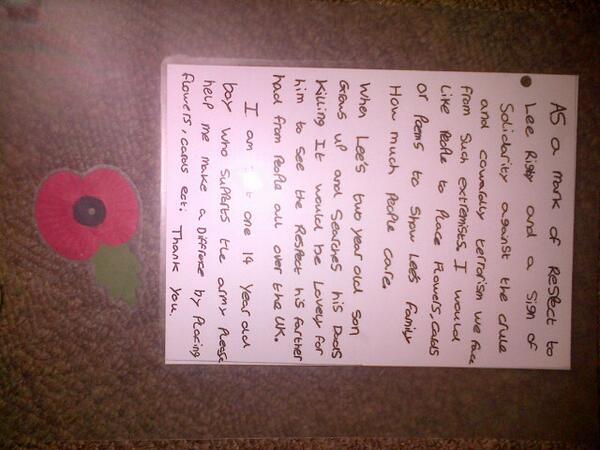 AS a mark of Respect to
Lee Rigby and a Sign of
Solidarity against the crule
and cowardly terrorism we face
from Such extremises. I would
Like People to Place Flowers, Cards
or Poems to Show Lee's Family
How much People care.
When Lee's two year old Son
Grows up and Searches his Dads
Killing It would be Lovely for
him to See the Respect his farther
had from People all over the UK.
I am one 14 year old
boy who Supports the army Please
help me make a Difference by Placing
flowers, Cards ect: Thank you.